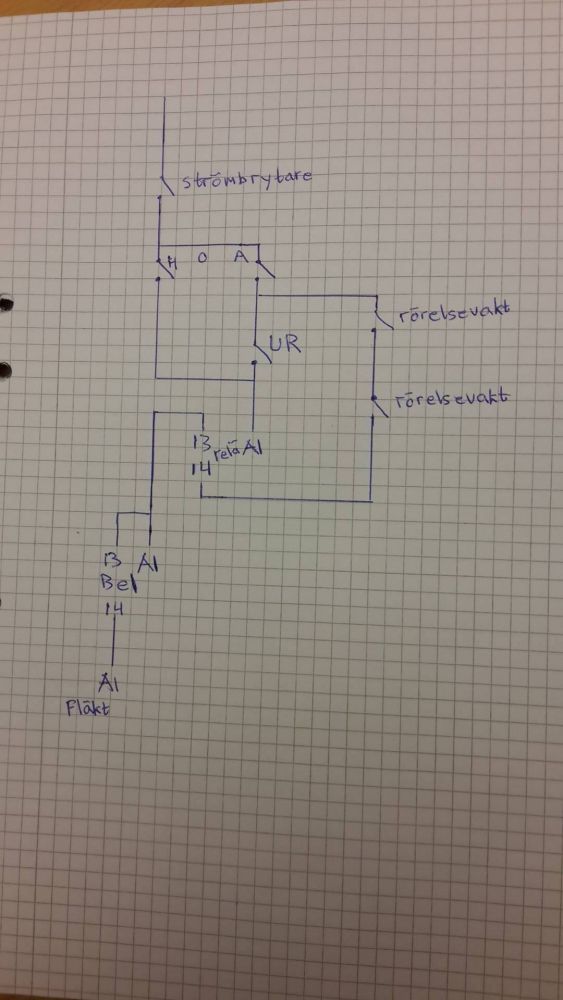 strömbrytare
H O A
rörelsevakt
UR
rörelsevakt
13
relä A1
14
13 A1
Bel
14
A1
Fläkt